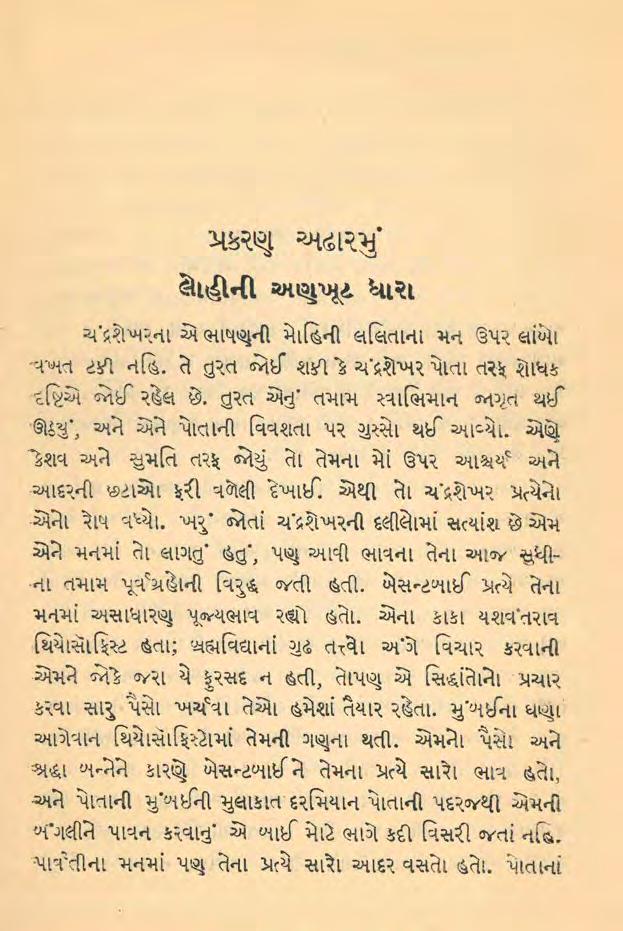 પ્રકરણ અઢારમું
લોહીની અણખૂટ ધારા
ચંદ્રશેખરના એ ભાષણની મોહિની લલિતાના મન ઉપર લાંબો
વખત ટકી નહિ. તે તુરત જોઈ શકી કે ચંદ્રશેખર પોતા તરફ શોધક
દૃષ્ટિએ જોઈ રહેલ છે. તુરત એનું તમામ સ્વાભિમાન જાગૃત થઈ
ઊઠ્યું, અને એને પોતાની વિવશતા પર ગુસ્સો થઈ આવ્યો. એણે
કેશવ અને સુમતિ તરફ જોયું તો તેમના મોં ઉપર આશ્ચર્ય અને
આદરની છટાઓ ફરી વળેલી દેખાઈ. એથી તો ચંદ્રશેખર પ્રત્યેનો
એનો રોષ વધ્યો. ખરું જોતાં ચંદ્રશેખરની દલીલોમાં સત્યાંશ છે એમ
એને મનમાં તો લાગતું હતું, પણ આવી ભાવના તેના આજ સુધી-
ના તમામ પૂર્વગ્રહોની વિરુદ્ધ જતી હતી. બેસન્ટબાઈ પ્રત્યે તેના
મનમાં અસાધારણ પૂજ્યભાવ રહ્યો હતો. એના કાકા યશવંતરાવ
થિયોસૉફિસ્ટ હતા; બ્રહ્મવિદ્યાનાં ગુઢ તત્ત્વો અંગે વિચાર કરવાની
એમને જોકે જરા યે ફુરસદ ન હતી, તોપણ એ સિદ્ધાંતોનો પ્રચાર
કરવા સારુ પૈસો ખર્ચવા તેઓ હમેશાં તૈયાર રહેતા. મુંબઈના ઘણા
આગેવાન થિયોસૉફિસ્ટોમાં તેમની ગણના થતી. એમનો પૈસો અને
શ્રદ્ધા બન્નેને કારણે બેસન્ટબાઈને તેમના પ્રત્યે સારો ભાવ હતો,
અને પોતાની મુંબઈની મુલાકાત દરમિયાન પોતાની પદરજથી એમની
બંગલીને પાવન કરવાનું એ બાઈ મોટે ભાગે કદી વિસરી જતાં નહિ.
પાર્વતીના મનમાં પણ તેના પ્રત્યે સારો આદર વસતો હતો. પોતાનાં